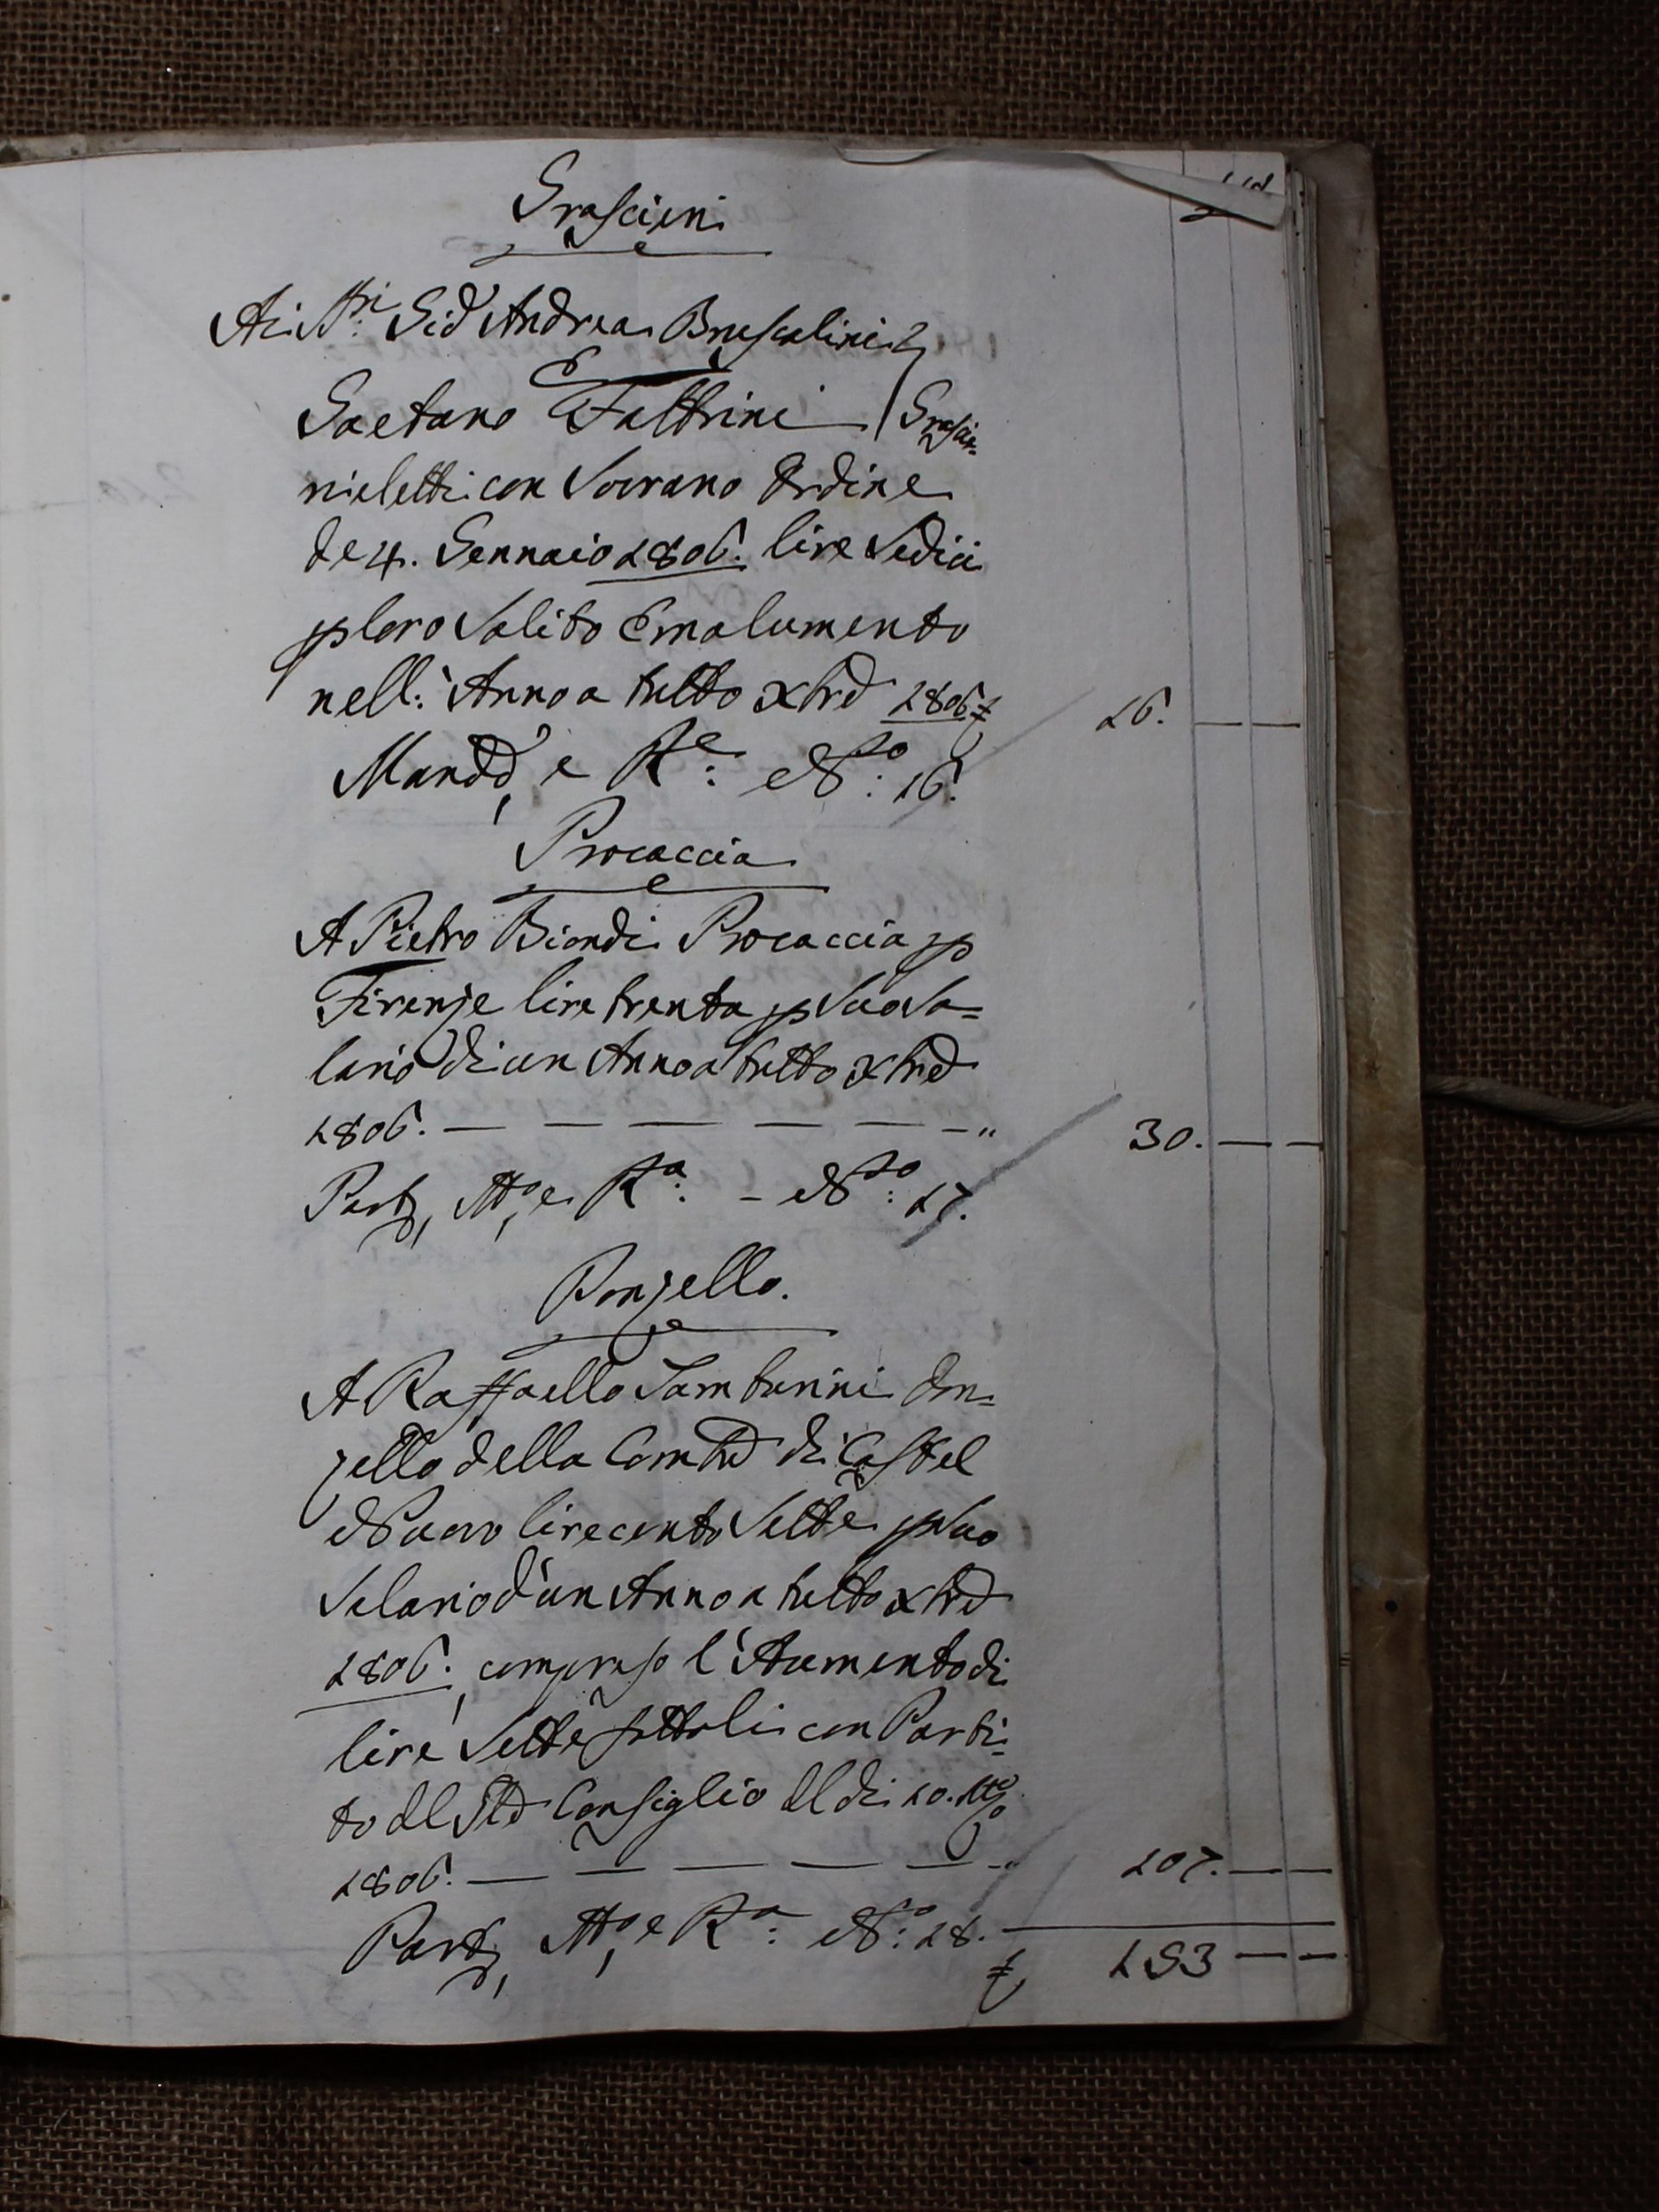 Grascieri
Ai Sri: Sid Andrea Bruscalini
E
Gaetano Faltrini Grascie-
ri eletti con Sovrano Ordine
de 4. Gennaio 1806. lire Sedici
p loro Solito Emolumento
nell: Anno a tutto xbrd 1806 £ 16. — —
Mandd, e Re: No: 16.
Procaccia
A Pietro Biondi Procaccia p
Firenze lire trenta p Suo Sa=
lario di un Anno a tutto xbrd
1806. — — — — — — " 30. — —
Part, Mo, e Ra: - No: 17.
Donzello.
A Raffaello Tamburini Don=
zello della Comtd di Castel
Nuovo lire cento Sette p Suo
Salario d'un Anno a tutto xbrd
1806. compreso l'Aumento di
lire Sette fattoli con Parti=
to del Gld Consiglio del di 10. Mgo
1806. — — — — — " 107. — —
Part, Mo, e Ra: No: 18.
£ 153 — —